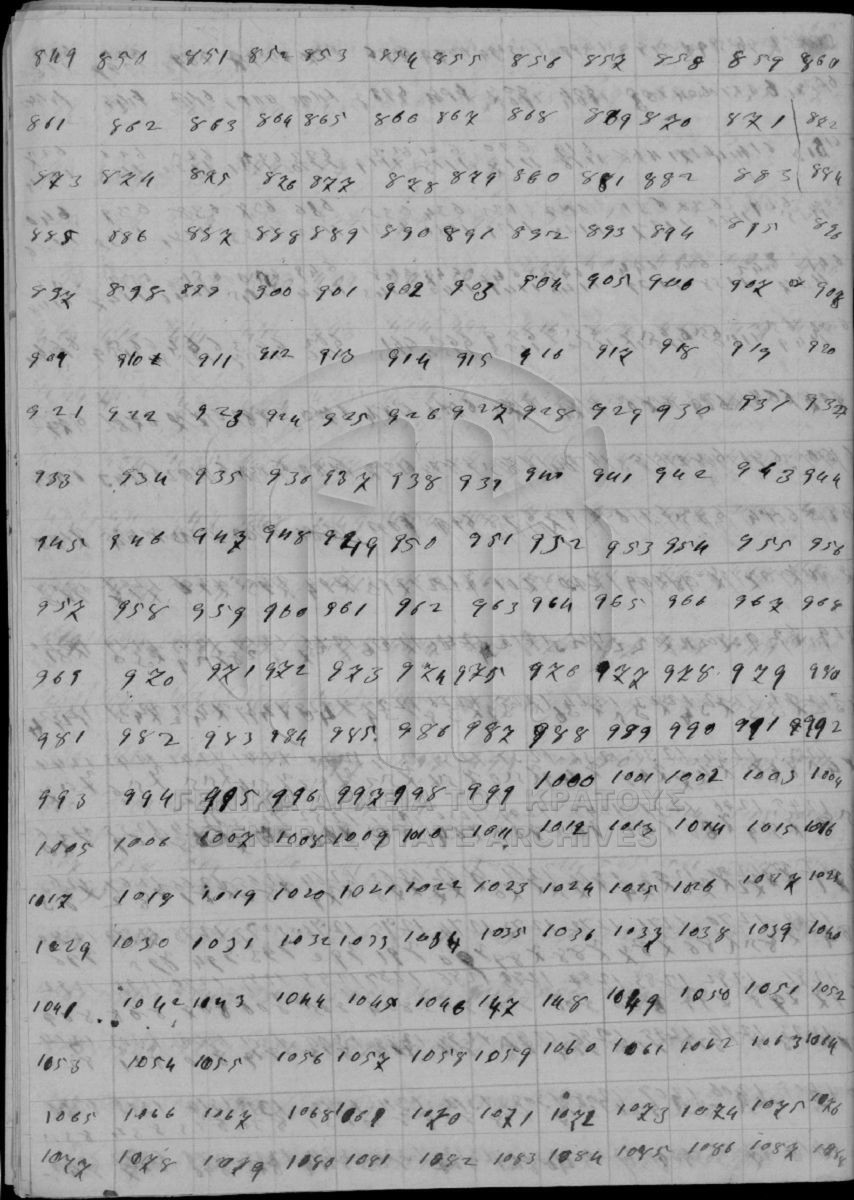 849 850 851 852 853 854 855 856 857 858 859 860
861 862 863 864 865 866 867 868 869 870 871 872
873 874 875 876 877 878 879 880 881 882 883 884
885 886 887 888 889 890 891 892 893 894 895 896
897 898 899 900 901 902 903 904 905 906 907 908
909 910 911 912 913 914 915 916 917 918 919 920
921 922 923 924 925 926 927 928 929 930 931 932
933 934 935 936 937 938 939 940 941 942 943 944
945 946 947 948 949 950 951 952 953 954 955 956
957 958 959 960 961 962 963 964 965 966 967 968
969 970 971 972 973 974 975 976 977 978 979 980
981 982 983 984 985 986 987 988 989 990 991 992
993 994 995 996 997 998 999 1000 1001 1002 1003 1004
ΓΕΝΙΚΑ ΑΡΧΕΙΑ ΤΟΥ ΚΡΑΤΟΥΣ
1005 1006 1007 1008 1009 1010 1011 1012 1013 1014 1015 1016
GENERAL STATE ARCHIVES
1017 1018 1019 1020 1021 1022 1023 1024 1025 1026 1027 1028
1029 1030 1031 1032 1033 1034 1035 1036 1037 1038 1039 1040
1041 1042 1043 1044 1045 1046 147 148 1049 1050 1051 1052
1053 1054 1055 1056 1057 1058 1059 1060 1061 1062 1063 1064
1065 1066 1067 1068 1069 1070 1071 1072 1073 1074 1075 1076
1077 1078 1079 1080 1081 1082 1083 1084 1085 1086 1087 1088